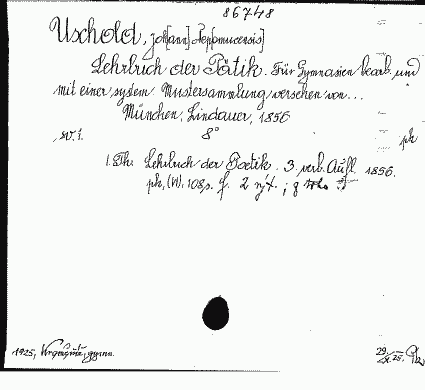 86748
Uschold, Joh[ann] Nep[omucensis]
Lehrbuch der Poëtik. Für Gymnasien bearb. und
mit einer system Mustersammlung versehen von...
München, Lindauer, 1856
8°
1. Th: Lehrbuch der Poetik. 3. verb. Aufl. 1856.
108 p.
1925, gymn.